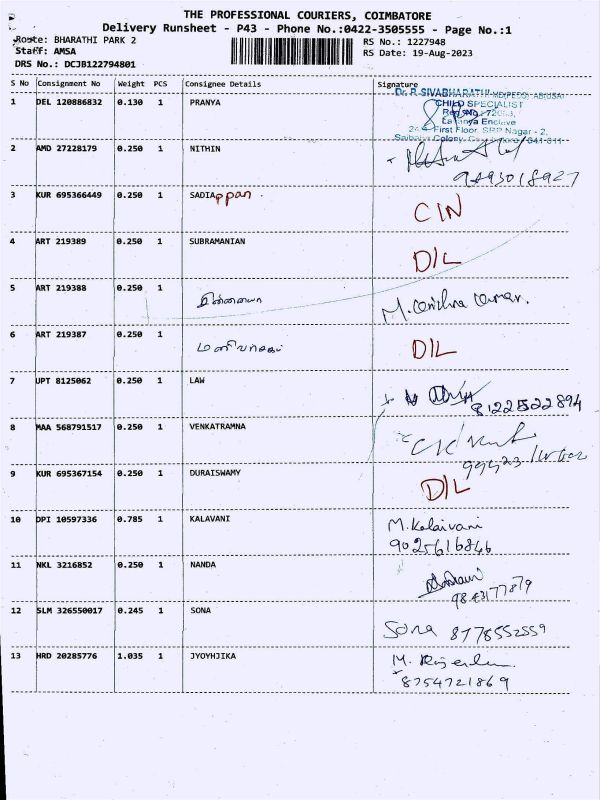 THE PROFESSIONAL COURIERS, COIMBATORE
Delivery Runsheet - P43 - Phone No.:0422-3505555 - Page No.:1
Route: BHARATHI PARK 2
RS No.: 1227948
Staff: AMSA
RS Date: 19-Aug-2023
DRS No.: DCJB122794801
S No Consignment No Weight PCS Consignee Details Signature
1 DEL 120886832 0.130 1 PRANYA
CHILD SPECIALIST
First Floor, SRP Nagar - 2,
2 AMD 27228179 0.250 1 NITHIN
3 KUR 695366449 0.250 1 SADIAppan CIN
4 ART 219389 0.250 1 SUBRAMANIAN D/L
5 ART 219388 0.250 1 M.
6 ART 219387 0.250 1 D/L
7 UPT 8125062 0.250 1 LAW
8122522894
8 MAA 568791517 0.250 1 VENKATRAMNA
9 KUR 695367154 0.250 1 DURAISWAMY D/L
10 DPI 10597336 0.785 1 KALAVANI M.Kalaivani
9025616846
11 NKL 3216852 0.250 1 NANDA
9843177879
12 SLM 326550017 0.245 1 SONA Sona 8778552559
13 HRD 20285776 1.035 1 JYOYHJIKA M.
8754721869